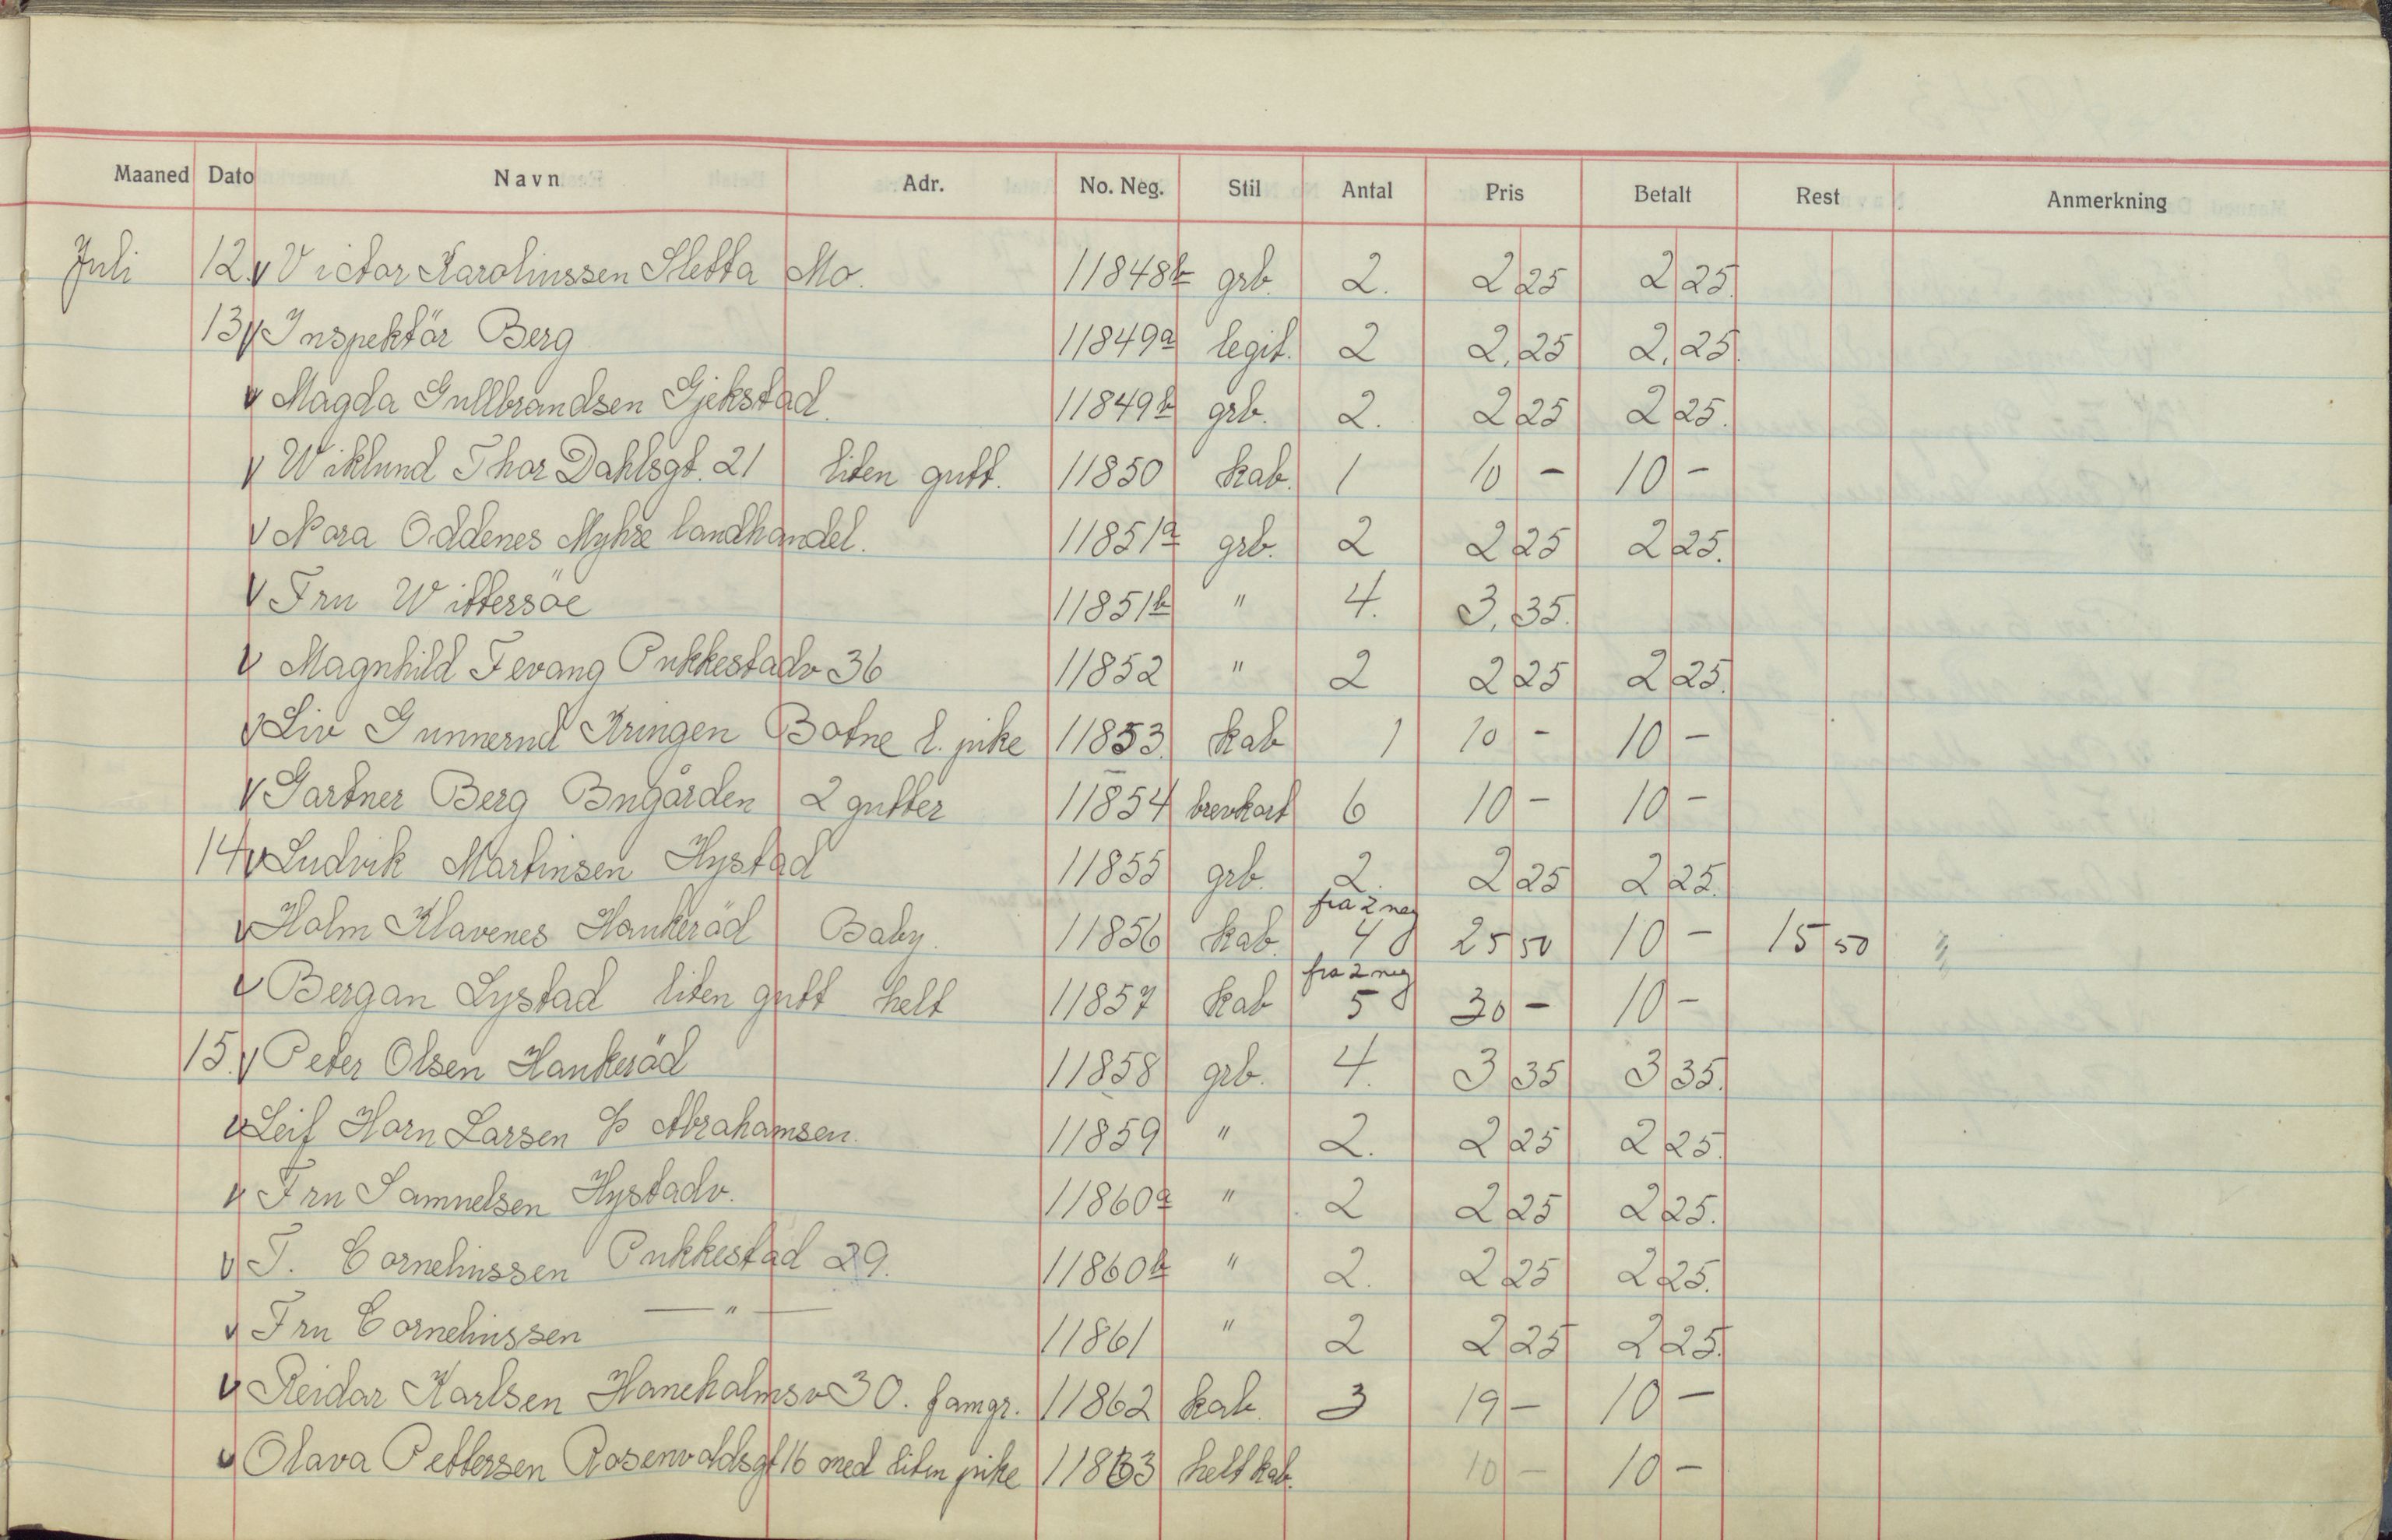 Maaned Dato Navn Adr. No. Neg. Stil Antal Pris Betalt Rest Anmerkning
Juli 12. v Victor Karolinssen Sletta Mo. 11848b grb. 2. 2 25 2 25.
13 v Inspektör Berg 11849a legit. 2 2,25 2,25.
v Magda Gullbrandsen Gjekstad. 11849b grb. 2. 2 25 2 25.
v Wiklund Thor Dahlsgt. 21 liten gutt. 11850 kab. 1 10 - 10 -
v Nora Oddenes Myhre landhandel. 11851a grb. 2 2 25 2 25.
v Fru Wittersöe 11851b " 4. 3,35.
v Magnhild Fevang Pukkestadv 36 11852 " 2 2 25 2 25.
v Liv Gunnerud Kringen Botne l. pike 11853. kab 1 10 - 10 -
v Gartner Berg Bugården 2 gutter 11854 brevkort 6 10 - 10 -
14 v Ludvik Martinsen Hystad 11855 grb. 2. 2 25 2 25.
v Holm Klavenes Haukeröd Baby. 11856 kab. fra 2 neg 4 25 50 10 - 15 50
v Bergan Lystad liten gutt helt 11857 kab fra 2 neg 5 30 - 10 -
15. v Peter Olsen Haukeröd 11858 grb. 4. 3 35 3 35.
v Leif Horn Larsen Abrahamsen. 11859 " 2. 2 25 2 25.
v Fru Samuelsen Hystadv. 11860a " 2 2 25 2 25.
v T. Corneliussen Pukkestad 29. 11860b " 2. 2 25 2 25.
v Fru Corneliussen — " — 11861 " 2 2 25 2 25.
v Reidar Karlsen Haneholmsv 30. famgr. 11862 kab. 3 19 - 10 -
v Olava Pettersen Rosenvoldsgt 16 med liten pike 11863 helt kab. 10 - 10 -